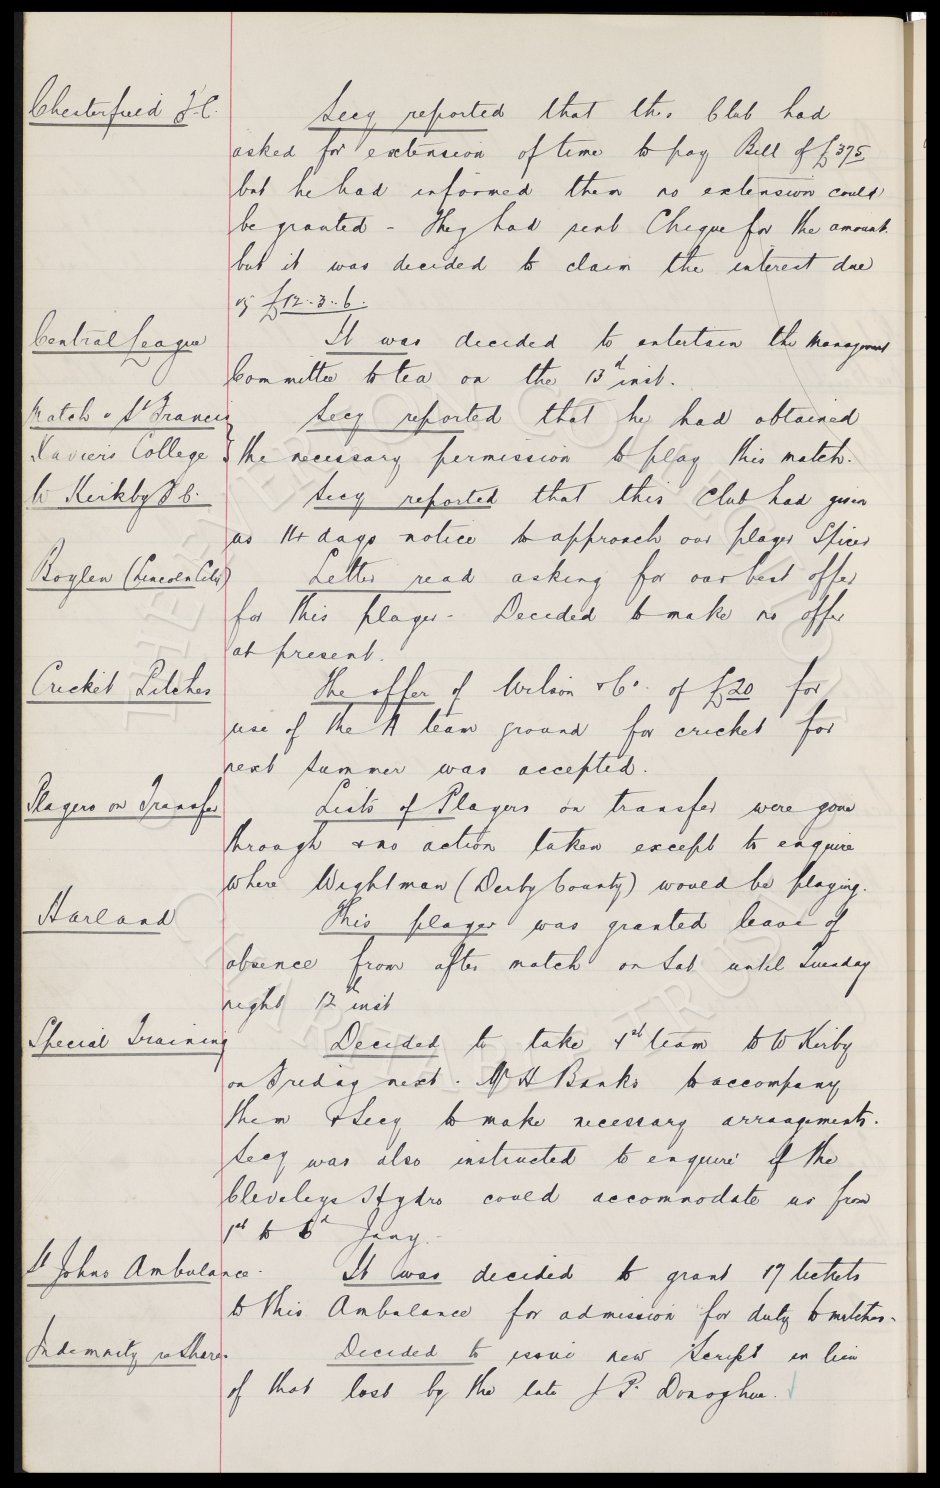 Chesterfield F.C. Secy reported that this Club had
asked for extension of time to pay Bill of £375
but he had informed them no extension could
be granted - They had sent Cheque for the amount.
but it was decided to claim the interest due
of £12..3..6.
Central League It was decided to entertain the Management
Committee to tea on the 13th inst.
Match v St Francis Secy reported that he had obtained
Xaviers College } the necessary permission to play this match.
W Kirkby F C. Secy reported that this Club had given
us 14 days notice to approach our player Spicer
Boylen (Lincoln City) Letter read asking for our best offer
for this player - Decided to make no offer
at present.
Cricket Pitches The offer of Wilson & Co. of £20 for
use of the A team ground for cricket for
next summer was accepted.
Players on Transfer Lists of Players on transfer were gone
through & no action taken except to enquire
where Wightman (Derby County) would be playing.
Harland This player was granted leave of
absence from after match on Sat until Tuesday
night 12th inst
Special Training Decided to take 1st team to W Kirby
on Friday next. Mr H Banks to accompany
them & Secy to make necessary arrangements.
Secy was also instructed to enquire if the
Cleveleys Hydro could accommodate us from
1st to 6th Jany.
St Johns Ambulance. It was decided to grant 17 tickets
to this Ambulance for admission for duty to matches.
Indemnity re Shares Decided to issue new Script in lieu
of that lost by the late J P. Donoghue.
THE EVERTON COLLECTION
CHARITABLE TRUST